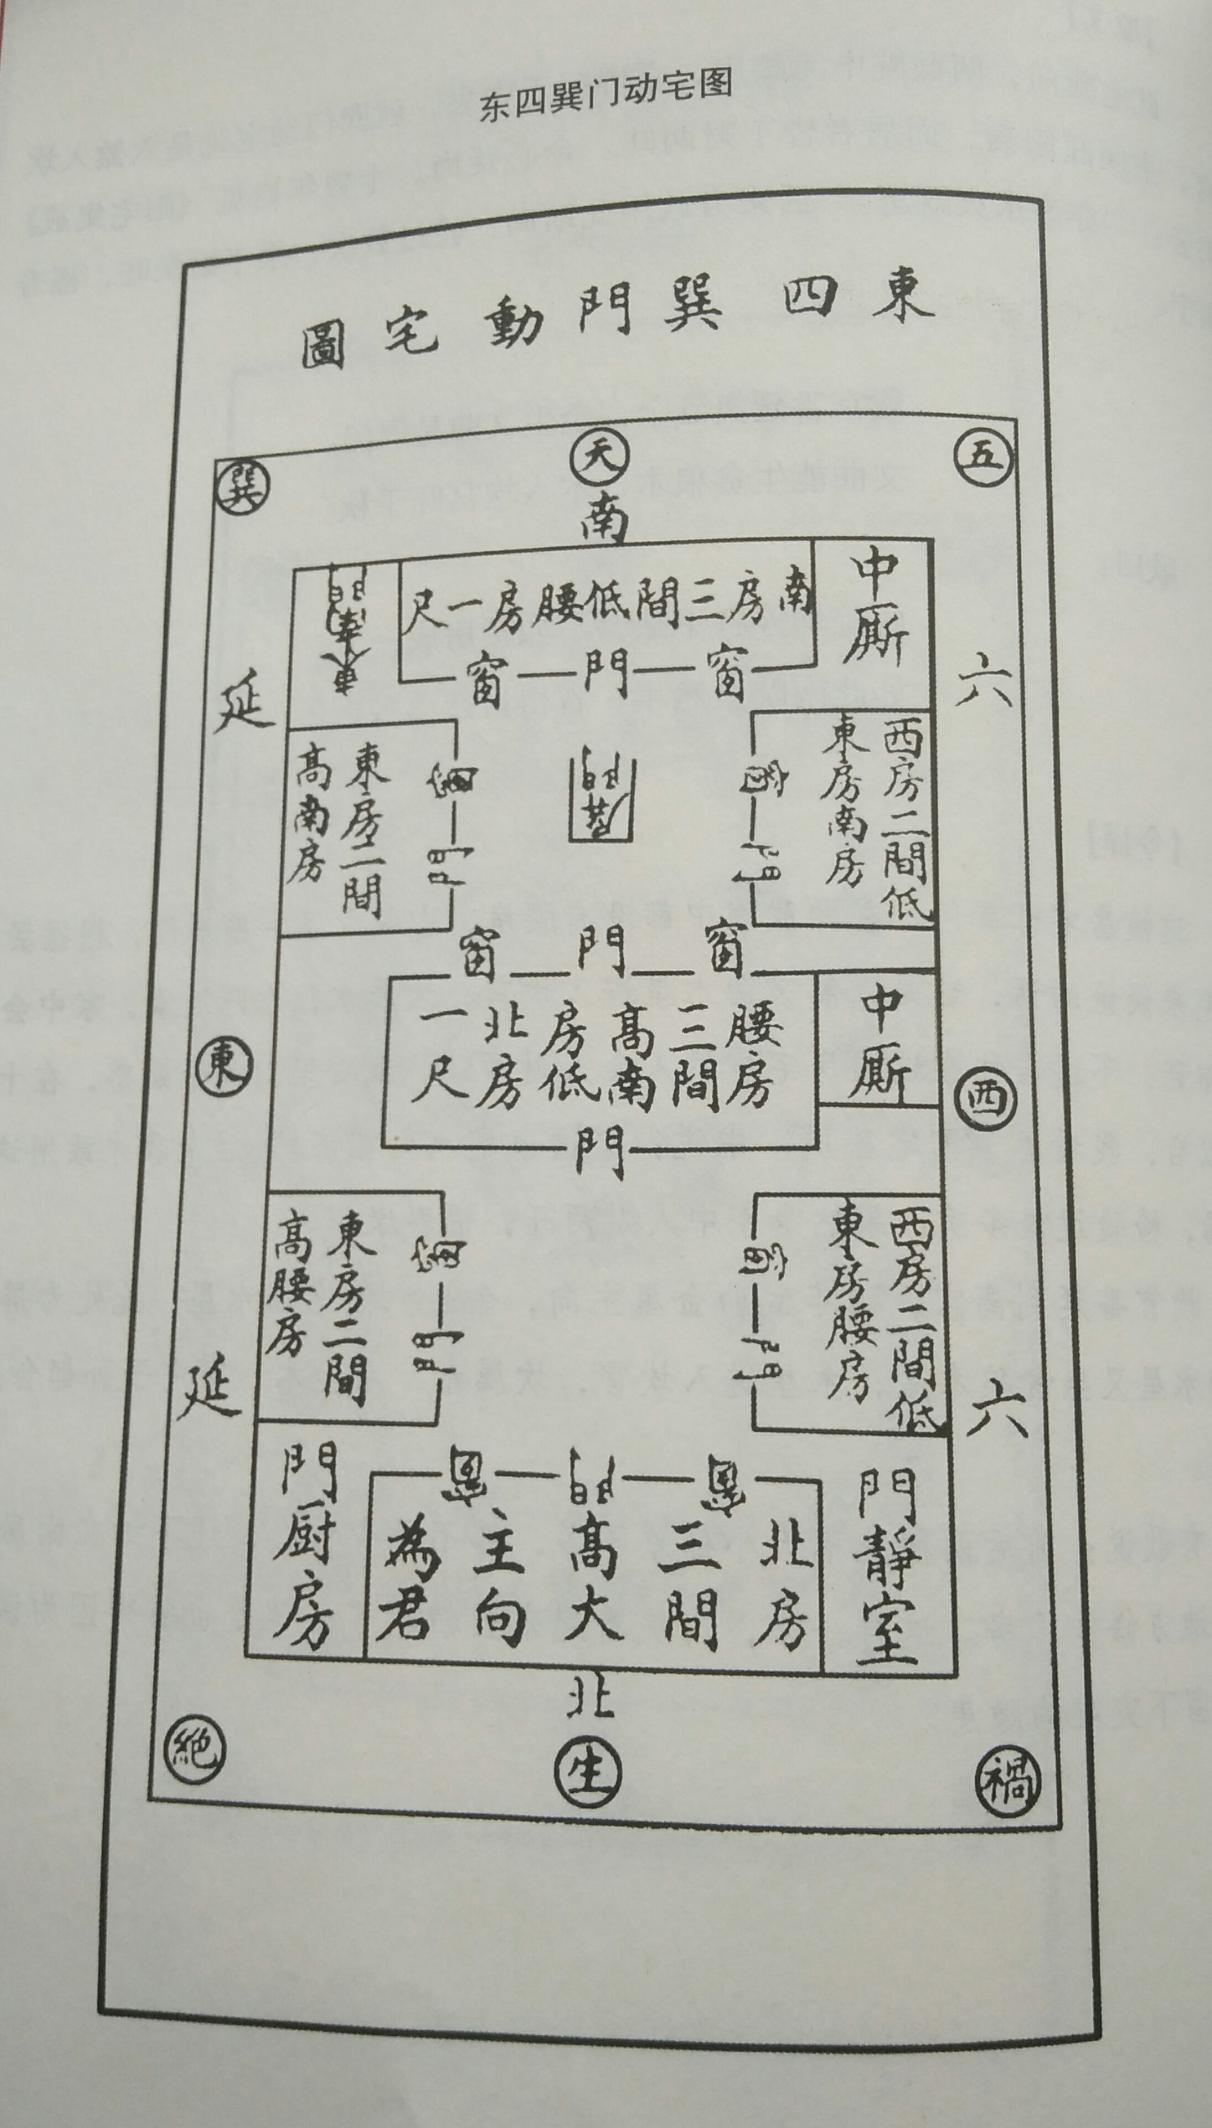 东四巽门动宅图
東四巽門動宅圖
巽
天
五
南
門
南房三間低腰房一尺
中厠
窗
門
窗
延
六
東房二間
高南房
窗
門
門
西房二間低
東房南房
窗
門
窗
門
窗
東
腰房三間高南房低北房一尺
中厠
西
門
東房二間
高腰房
窗
門
西房二間低
東房腰房
窗
門
延
六
門厨房
窗
門
窗
北房三間高大主向為君
門靜室
北
絶
生
禍